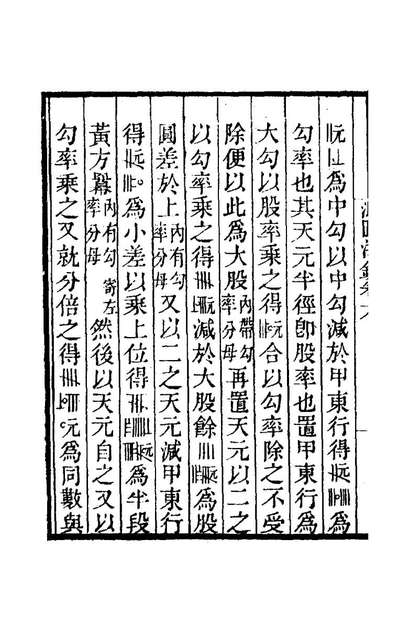 爲中勾以中勾減於甲東行得爲
勾率也其天元半徑卽股率也置甲東行爲
大勾以股率乘之得合以勾率除之不受
除便以此爲大股內帶勾率分母再置天元以二之
以勾率乘之得減於大股餘爲股
圓差於上內有勾率分母又以二之天元減甲東行
得爲小差以乘上位得爲半段
黃方羃內有勾率分母寄左然後以天元自之又以
勾率乘之又就分倍之得爲同數與